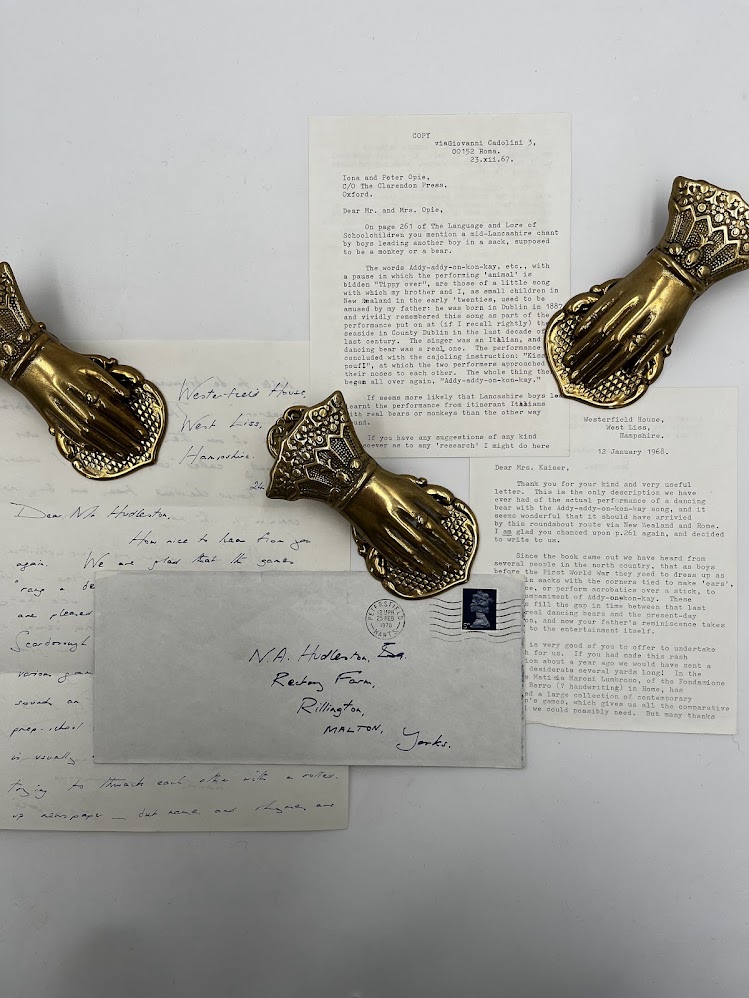 COPY
viaGiovanni Cadolini 3,
00152 Roma.
23.xii.67.
Iona and Peter Opie,
C/O The Clarendon Press,
Oxford.
Dear Mr. and Mrs. Opie,
On page 261 of The Language and Lore of
Schoolchildren you mention a mid-Lancashire chant
by boys leading another boy in a sack, supposed
to be a monkey or a bear.
The words Addy-addy-on-kon-kay, etc., with
a pause in which the performing 'animal' is
bidden "Tippy over", are those of a little song
with which my brother and I, as small children in
New Zealand in the early 'twenties, used to be
amused by my father: he was born in Dublin in 1887
and vividly remembered this song as part of the
performance put on at (if I recall rightly) the
seaside in County Dublin in the last decade of
last century. The singer was an Italian, and
dancing bear was a real one. The performance
concluded with the cajoling instruction: "Kiss
pouff", at which the two performers approached
their noses to each other. The whole thing
began all over again, "Addy-addy-on-kon-kay."
If seems more likely that Lancashire boys
learnt the performance from itinerant Italians
with real bears or monkeys than the other way
If you have any suggestions of any kind
ever as to any 'research' I might do here
Westerfield House,
West Liss,
Hampshire.
12 January 1968.
Dear Mrs. Kaiser,
Thank you for your kind and very useful
letter. This is the only description we have
ever had of the actual performance of a dancing
bear with the Addy-addy-on-kon-kay song, and it
seems wonderful that it should have arrived
by this roundabout route via New Zealand and Rome.
I am glad you chanced upon p.261 again, and decided
to write to us.
Since the book came out we have heard from
several people in the north country, that as boys
before the First World War they used to dress up as
in sacks with the corners tied to make 'ears',
or perform acrobatics over a stick, to
of Addy-on-kon-kay. These
fill the gap in time between that last
real dancing bears and the present-day
and now your father's reminiscence takes
to the entertainment itself.
is very good of you to offer to undertake
for us. If you had made this rash
about a year ago we would have sent a
desiderata several yards long! In the
Maroni Lumbroso, of the Fondazione
Berro (? handwriting) in Rome, has
a large collection of contemporary
games, which gives us all the comparative
we could possibly need. But many thanks
Westerfield House,
West Liss,
Hampshire.
Dear Mr. Hudleston,
How nice to hear from you
again. We are glad that the games
are pleased
Scarborough
various
sounds an
prep. school
is usually
trying to thwack each other with a
up newspaper — but name and rhymes are
PETERSFIELD
12 15 PM
25 FEB
1970
HANTS
5D
N.A. Hudleston, Esq.
Rectory Farm,
Rillington,
MALTON,
Yorks.